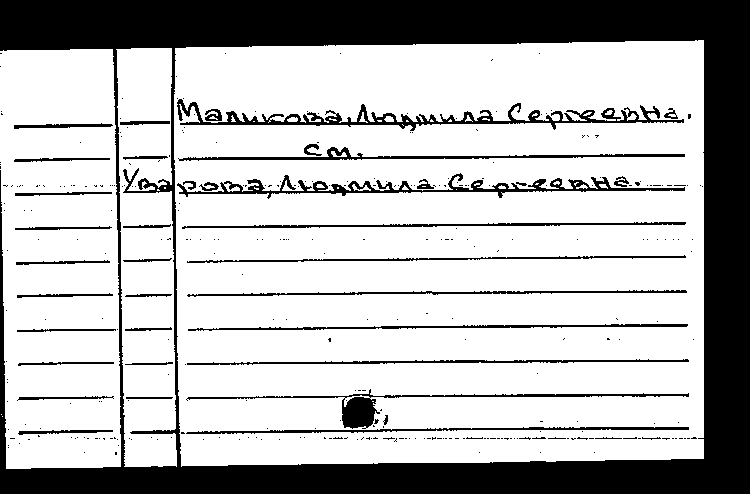 Маликова, Людмила Сергеевна.
см.
Уварова, Людмила Сергеевна.